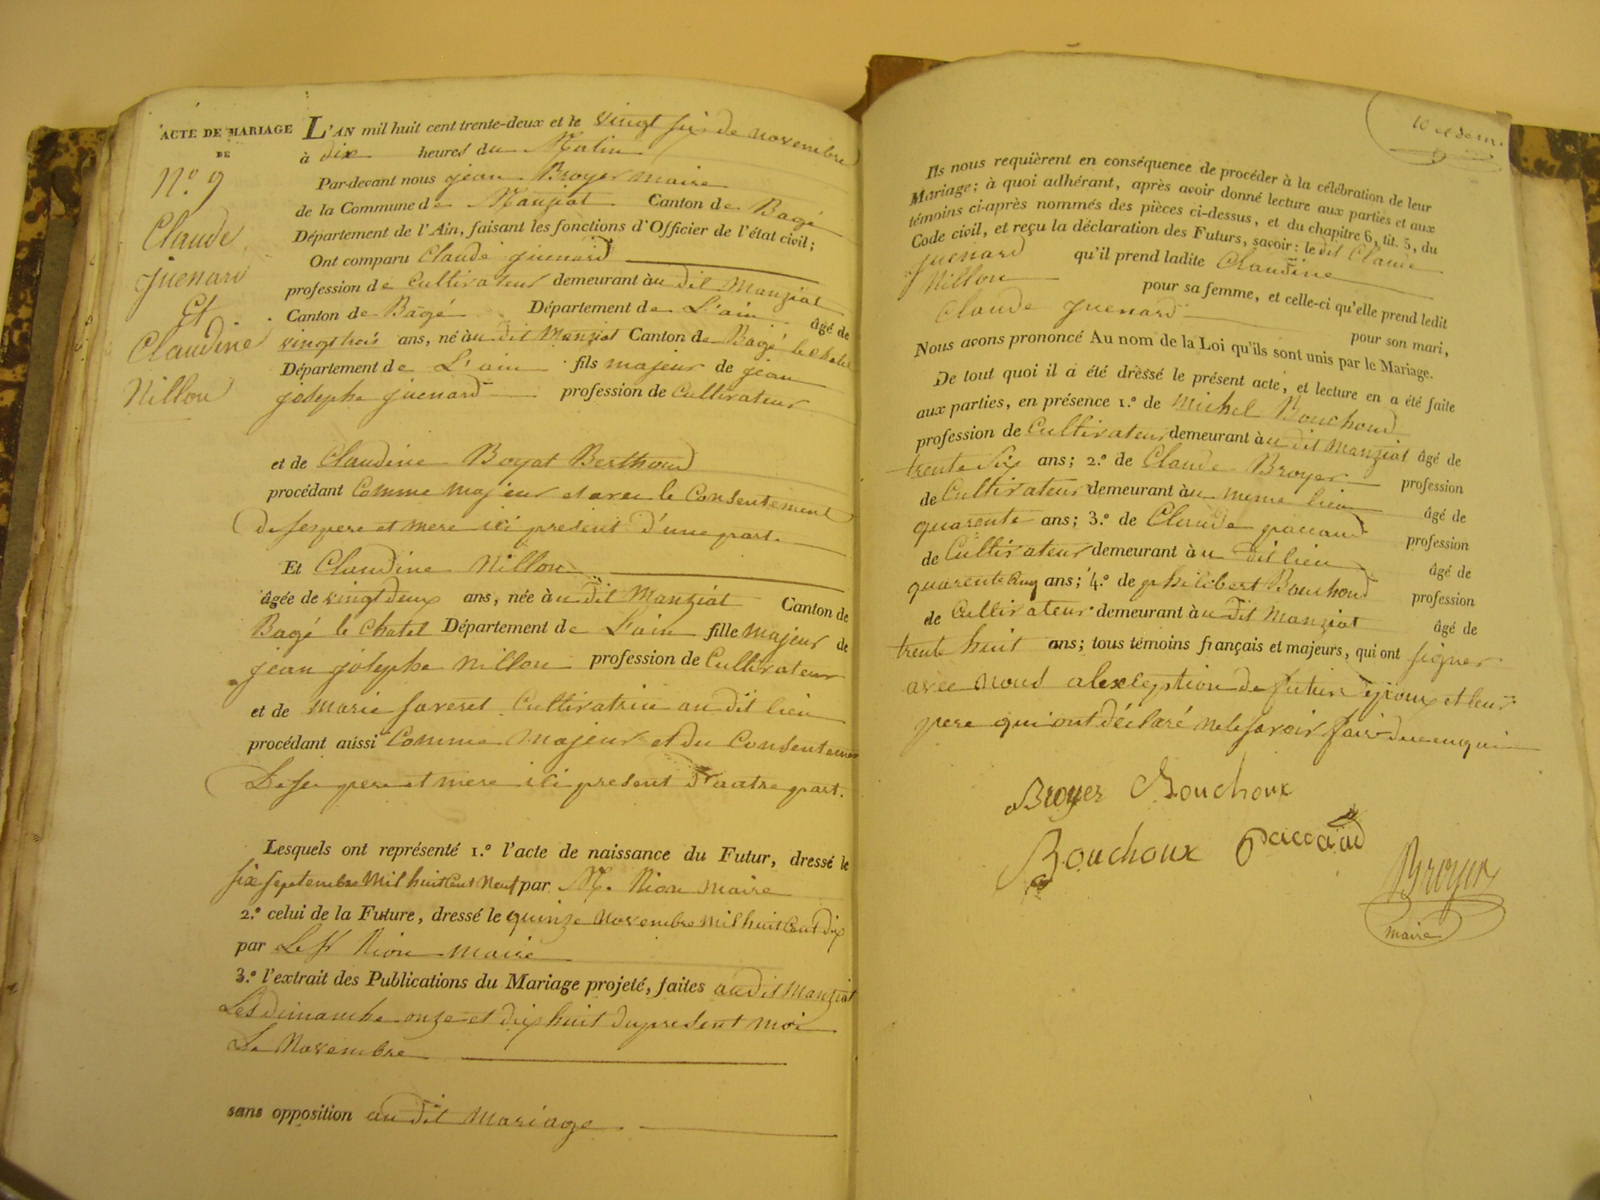 ACTE DE MARIAGE
DE
N.o 9
Claude
juenard
Et
Claudine
Nillon
L'AN mil huit cent trente-deux et le vingt six de novembre
à dix heures du Matin
Par-devant nous jean Broyer maire
de la Commune de Manziat Canton de Bagé
Département de l'Ain, faisant les fonctions d'Officier de l'état civil;
Ont comparu Claude juenard
profession de Cultivateur demeurant àu dit Manziat
Canton de Bagé Département de L'ain âgé de
vingt trois ans, né àu dit Manziat Canton de Bagé le chatel
Département de L'ain fils majeur de jean
josephe juenard profession de Cultivateur
et de Claudine Boyat Berthoud
procédant Comme majeur et avec le Consentement
de ses pere et mere ici présent d'une part.
Et Claudine Nillon
âgée de vingt deux ans, née àu dit Manziat Canton de
Bagé le Chatel Département de L'ain fille majeur de
jean josephe nillon profession de Cultivateur
et de Marie faveret Cultivatrice au dit lieu
procédant aussi Comme majeur et du Consentement
De se pere et mere ici présent d'autre part.
Lesquels ont représenté 1.o l'acte de naissance du Futur, dressé le
six septembre Mil huit Cent Neuf par M. Nion maire
2.o celui de la Future, dressé le quinze novembre mil huit Cent dix
par Le Sr Nion maire
3.o l'extrait des Publications du Mariage projeté, faites au dit Manziat
Les dimanche onze et dix huit du present moi
De Novembre
sans opposition au dit mariage
Ils nous requièrent en conséquence de procéder à la célébration de leur
Mariage; à quoi adhérant, après avoir donné lecture aux parties et aux
témoins ci-après nommés des pièces ci-dessus, et du chapitre 6, tit. 5, du
Code civil, et reçu la déclaration des Futurs, savoir: le dit Claude
juenard qu'il prend ladite Claudine
Nillon pour sa femme, et celle-ci qu'elle prend ledit
Claude juenard pour son mari,
Nous avons prononcé Au nom de la Loi qu'ils sont unis par le Mariage.
De tout quoi il a été dressé le présent acte, et lecture en a été faite
aux parties, en présence 1.o de Michel Bouchoud
profession de Cultivateur demeurant àu dit Manziat âgé de
trente six ans; 2.o de Claude Broyer profession
de Cultivateur demeurant àu meme lieu âgé de
quarente ans; 3.o de Claude paccaud profession
de Cultivateur demeurant àu dit lieu âgé de
quarente Cinq ans; 4.o de philibert Bouchoud profession
de Cultivateur demeurant àu dit Manziat âgé de
trente huit ans; tous témoins français et majeurs, qui ont signer
avec nous alexception de futur époux et leur
pere qui ont déclaré ne le savoir fair de ce enquis
Broyer Bouchoux
Bouchoux Paccaud
Broyer
maire